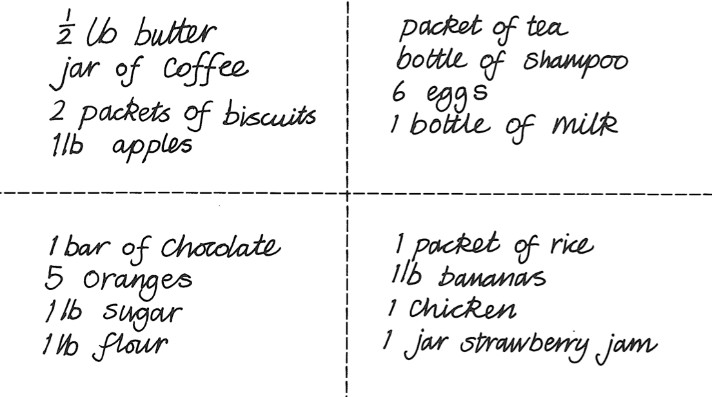 ½ lb butter
jar of coffee
2 packets of biscuits
1lb apples
packet of tea
bottle of shampoo
6 eggs
1 bottle of milk
1 bar of chocolate
5 oranges
1 lb sugar
1 lb flour
1 packet of rice
1lb bananas
1 chicken
1 jar strawberry jam